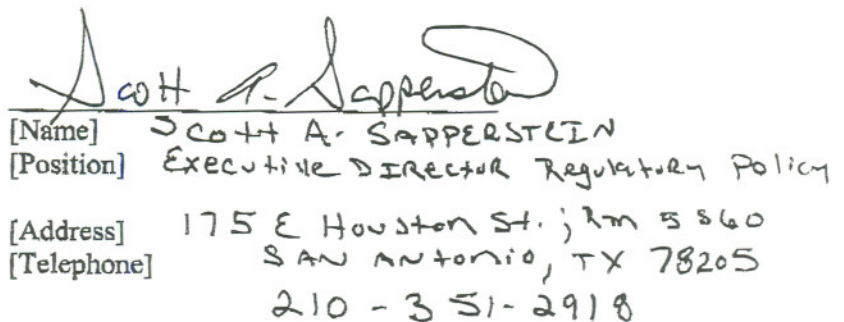 Scott A. Sapperstein
[Name] Scott A. SAPPERSTEIN
[Position] Executive DIRector Regulatory Policy
[Address] 175 E Houston St.; Rm
[Telephone] SAN ANtonio, TX 78205
210-351-2918